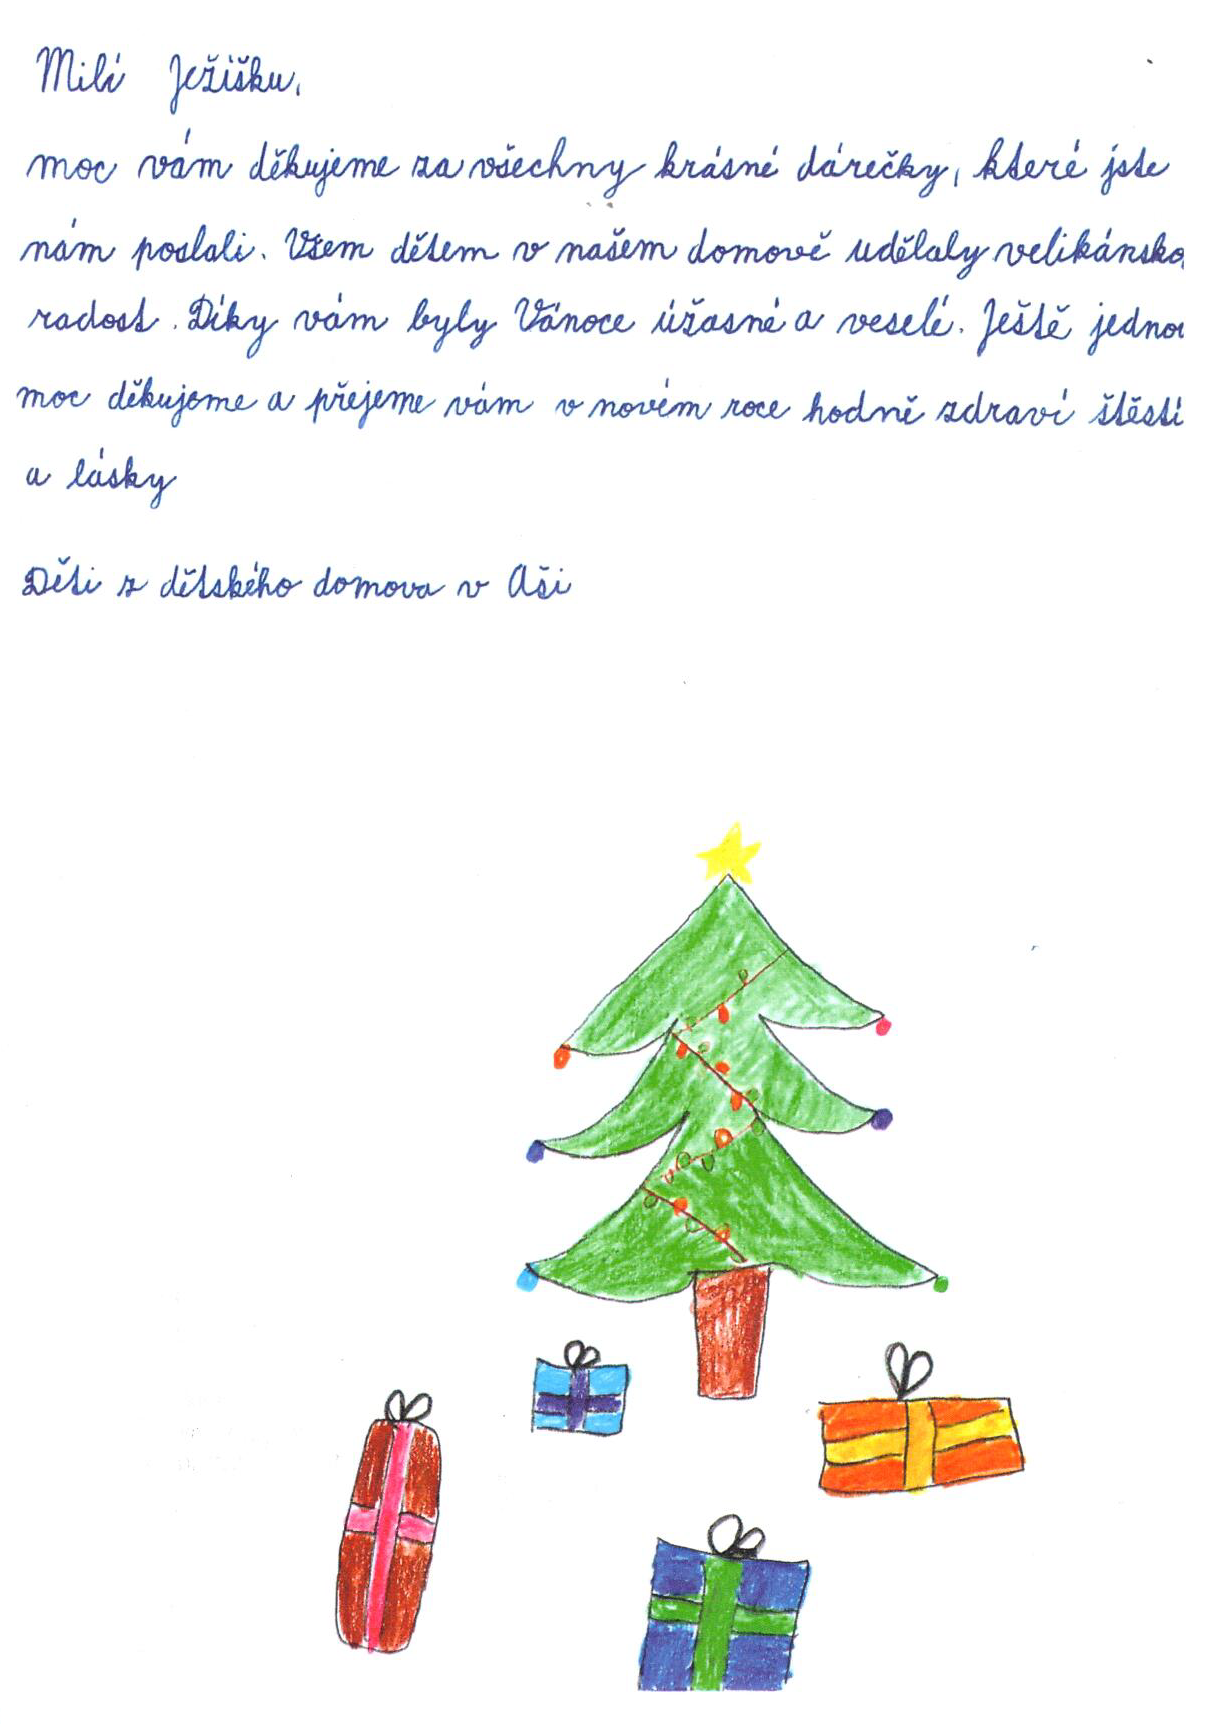 Milí Ježíšku,
moc vám děkujeme za všechny krásné dárečky, které jste
nám poslali. Všem dětem v našem domově udělaly velikánsko
radost. Díky vám byly Vánoce úžasné a veselé. Ještě jednou
moc děkujeme a přejeme vám v novém roce hodně zdraví štěstí
a lásky
Děti z dětského domova v Aši